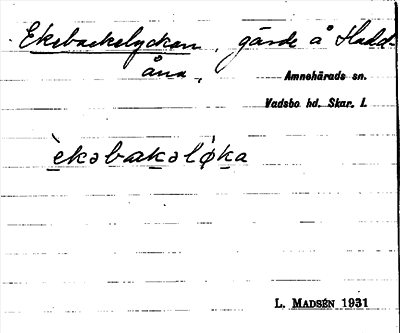 Ekebackelyckan, gärde å Hadd-
åna,
Amnehärads sn.
Vadsbo hd. Skar. l.
èkəbakəlø̀ka
L. MADSÉN 1931